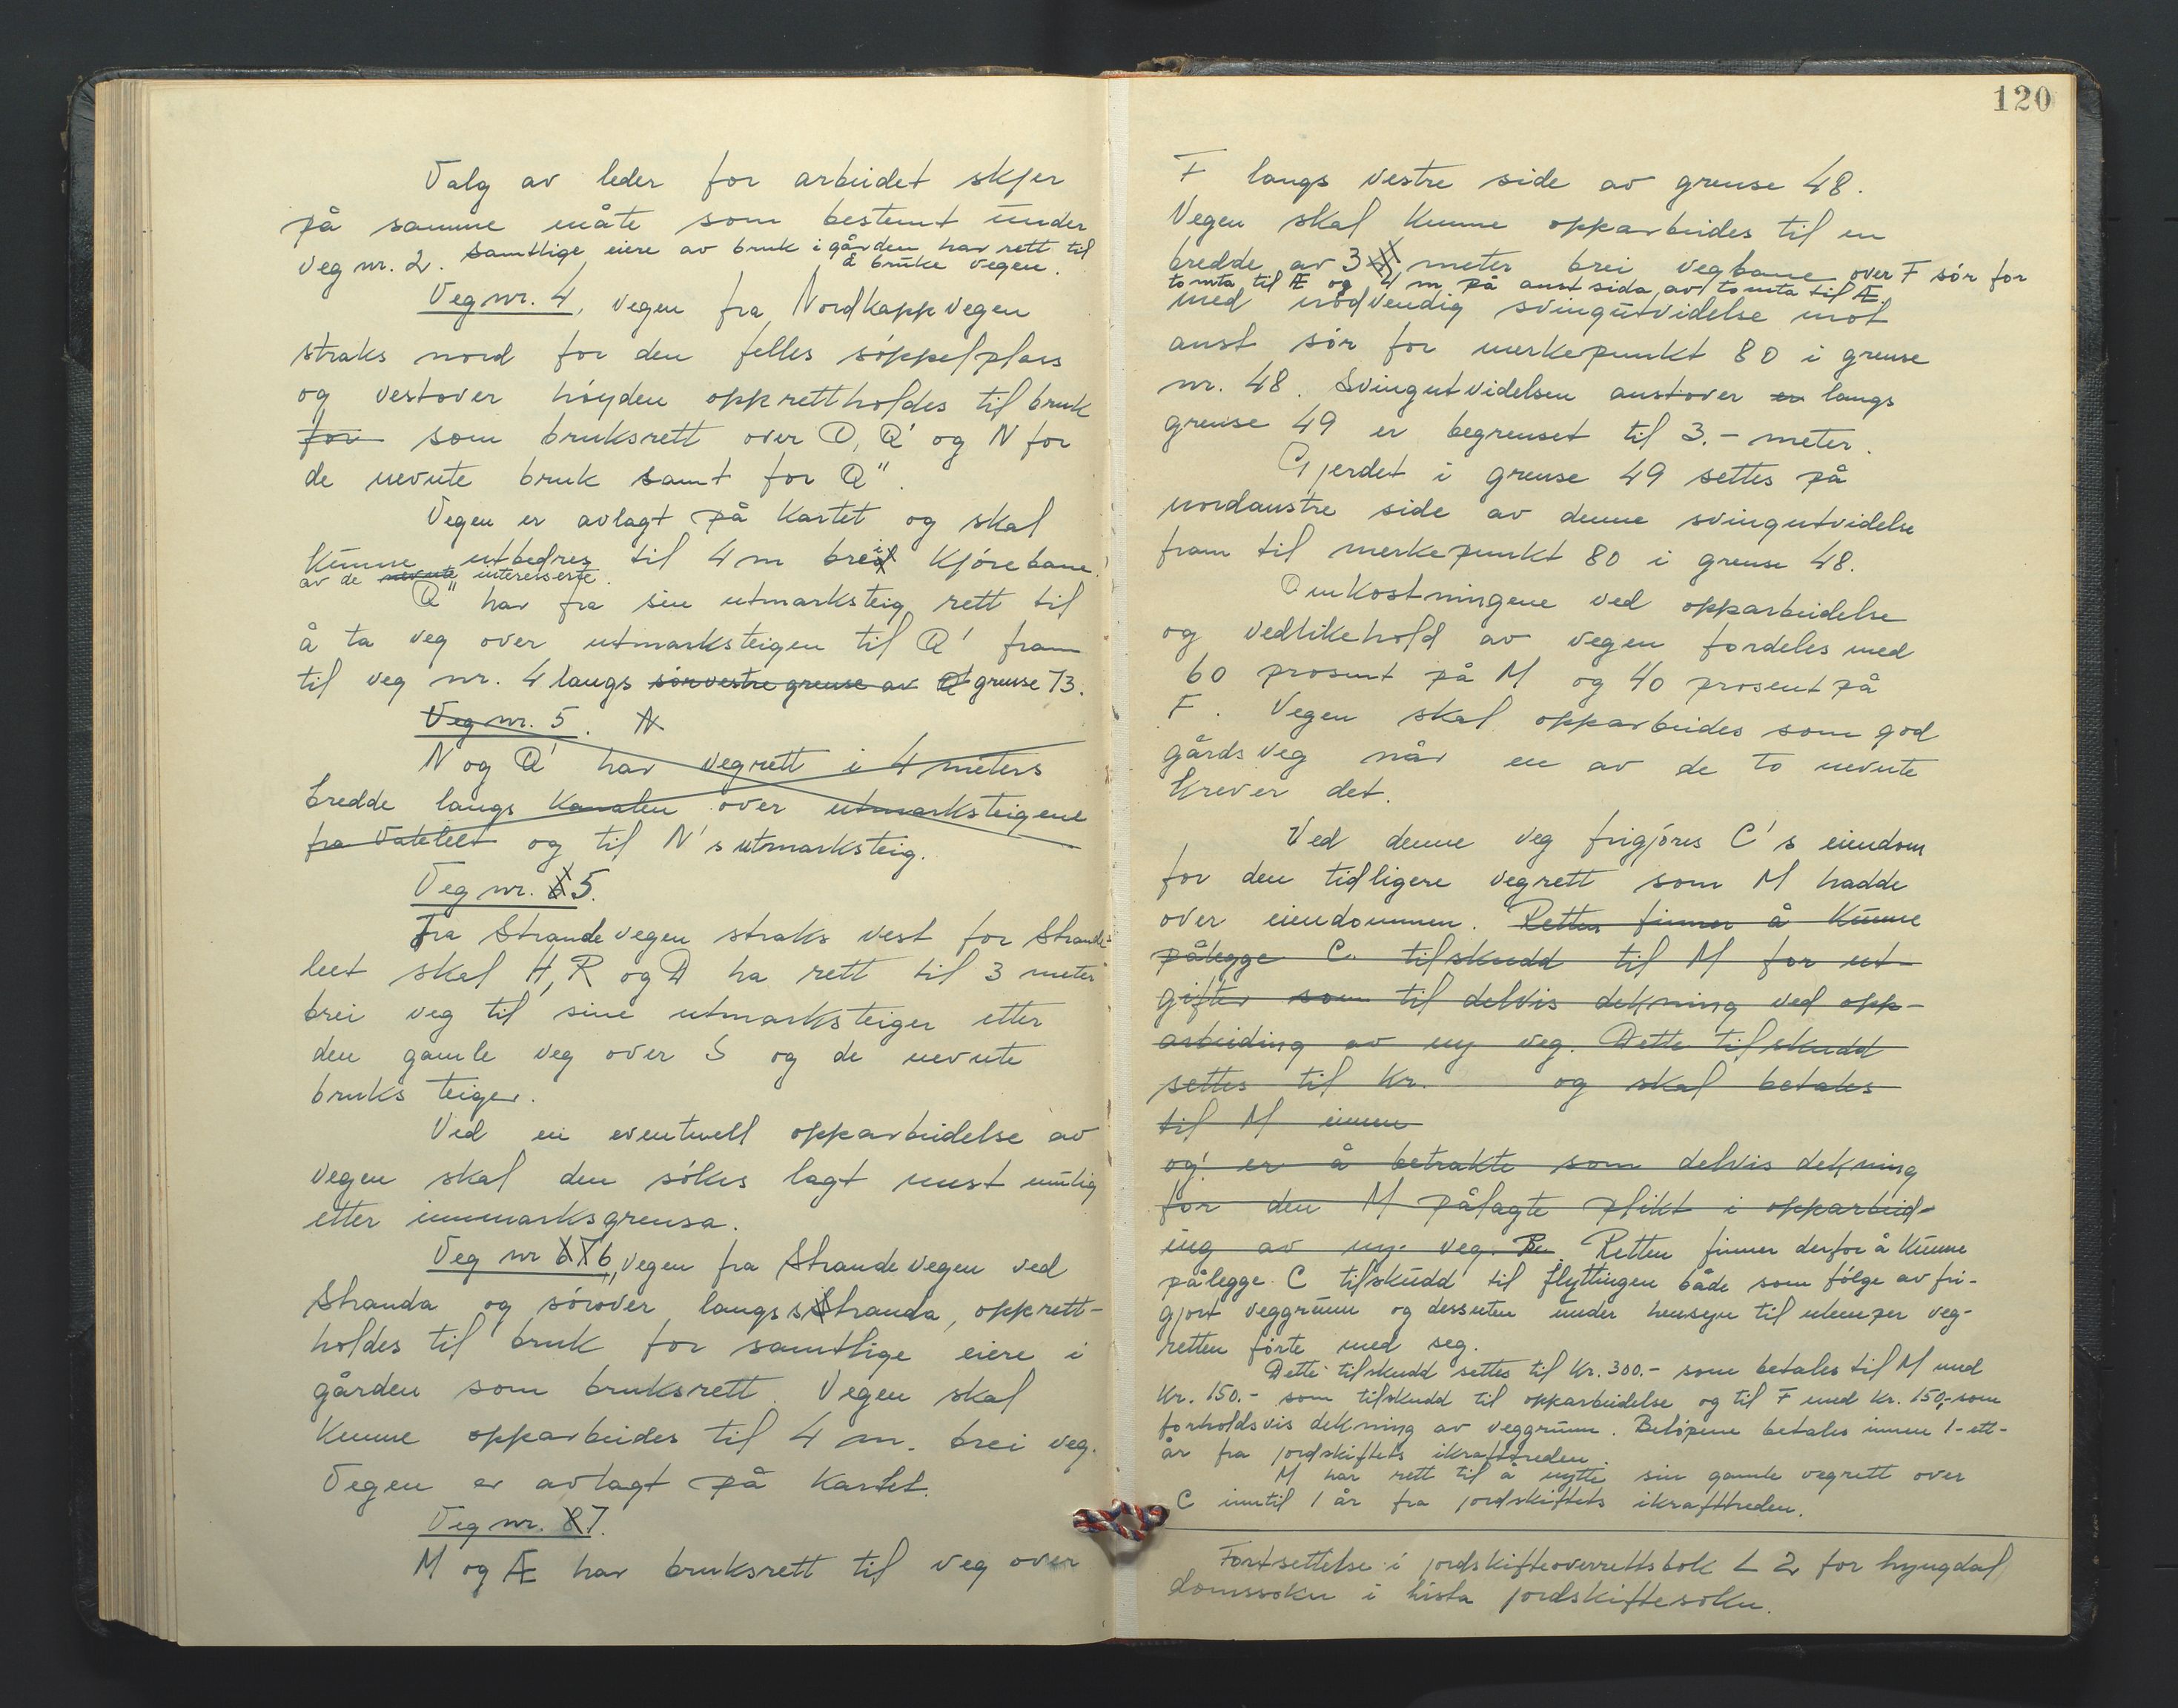 Valg av leder for arbeidet skjer
på samme måte som bestemt under
veg nr. 2. Samtlige eiere av bruk i gården har rett til
å bruke vegen.
Veg nr. 4, vegen fra Nordkappvegen
straks nord for den felles søppelplass
og vestover høyden opprettholdes til bruk
for som bruksrett over O, Q' og N for
de nevnte bruk samt for Q".
Vegen er avlagt på kartet og skal
kunne utbedres til 4 m brei kjørebane
av de nevnte interesserte.
Q" har fra sin utmarksteig rett til
å ta veg over utmarksteigen til Q' fram
til veg nr. 4 langs sørvestre grense av Q' grense 73.
Veg nr. 5. N
N og Q' har vegrett i 4 meters
bredde langs Kanalen over utmarksteigene
fra Vateleet og til N's utmarksteig.
Veg nr. 6 5.
Fra Strandevegen straks vest for Strande-
leet skal H, R og D ha rett til 3 meter
brei veg til sine utmarksteiger etter
den gamle veg over S og de nevnte
bruks teiger.
Ved en eventuell opparbeidelse av
vegen skal den søkes lagt mest mulig
etter innmarksgrensa.
Veg nr 6 7 6, vegen fra Strandevegen ved
Stranda og sørover langs stranda, opprett-
holdes til bruk for samtlige eiere i
gården som bruksrett. Vegen skal
kunne opparbeides til 4 m. brei veg.
Vegen er avlagt på kartet.
Veg nr. 8 7.
M og Æ har bruksrett til veg over
120
F langs vestre side av grense 48.
Vegen skal kunne opparbeides til en
bredde av 3 4 meter brei vegbane over F sør for
tomta til Æ og 4 m på aust sida av tomta til Æ.
med nødvendig svingutvidelse mot
aust sør for merkepunkt 80 i grense
nr. 48. Svingutvidelsen austover er langs
grense 49 er begrenset til 3.- meter.
Gjerdet i grense 49 settes på
nordaustre side av denne svingutvidelse
fram til merkepunkt 80 i grense 48.
Omkostningene ved opparbeidelse
og vedlikehold av vegen fordeles med
60 prosent på M og 40 prosent på
F. Vegen skal opparbeides som god
gårdsveg når en av de to nevnte
krever det.
Ved denne veg frigjøres C's eiendom
for den tidligere vegrett som M hadde
over eiendommen. Retten finner å kunne
pålegge C. tilskudd til M for ut-
gifter som til delvis dekning ved opp-
arbeiding av ny veg. Dette tilskudd
settes til kr. og skal betales
til M innen
og er å betrakte som delvis dekning
for den M pålagte plikt i opparbeid-
ing av ny veg. Re Retten finner derfor å kunne
pålegge C tilskudd til flyttingen både som følge av fri-
gjort veggrunn og dessuten under hensyn til ulemper veg-
retten førte med seg.
Dette tilskudd settes til kr. 300.- som betales til M med
kr. 150.- som tilskudd til opparbeidelse og til F med kr. 150,- som
forholdsvis dekning av veggrunn. Beløpene betales innen 1-ett-
år fra jordskiftets ikrafttreden.
M har rett til å nytte sin gamle vegrett over
C inntil 1 år fra jordskiftets ikrafttreden.
Fortsettelse i jordskifteoverrettsbok L 2 for Lyngdal
domssokn i Lista jordskiftesokn.